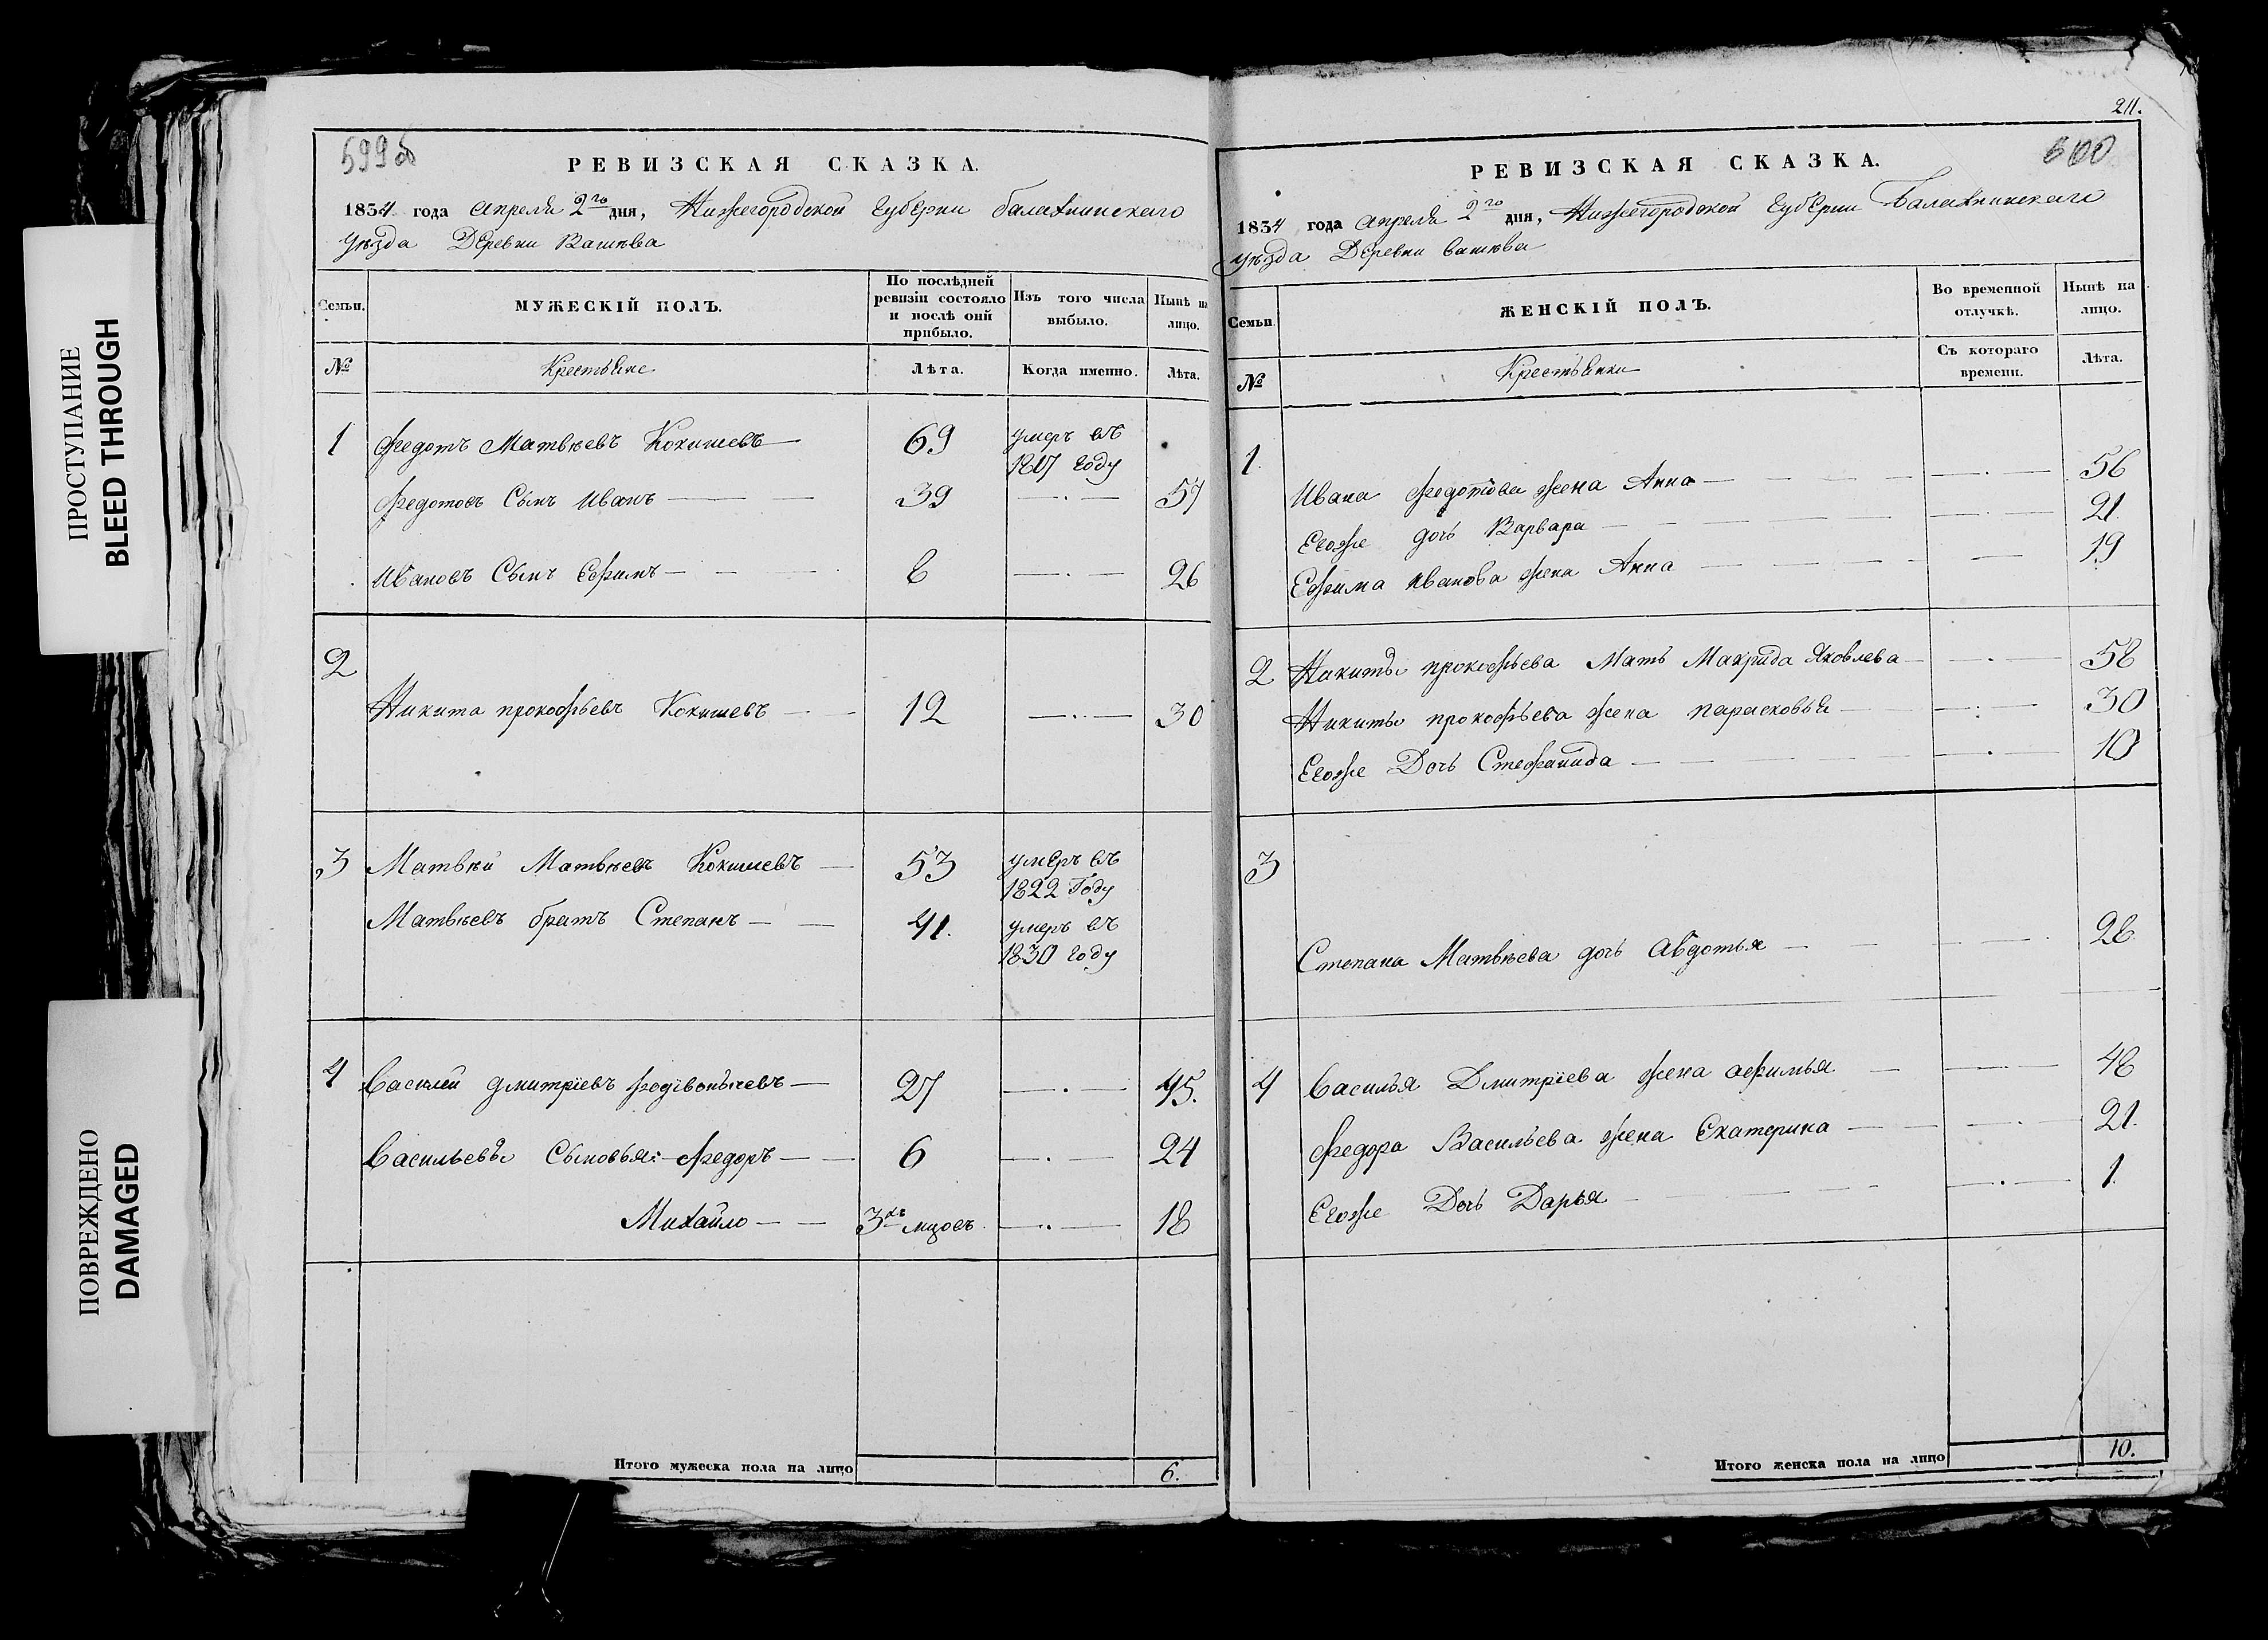 ПРОСТУПАНИЕ
BLEED THROUGH
ПОВРЕЖДЕНО
DAMAGED
599 об
РЕВИЗСКАЯ СКАЗКА.
1834 года апреля 2го дня, Нижегородской губернии балахнинскаго
уѣзда Деревни Вашкѣва
Семьи.
МУЖЕСКІЙ ПОЛЪ.
По послѣдней
ревизіи состояло
и послѣ оній
прибыло.
Изъ того числа
выбыло.
Нынѣ на
лицо.
№
Крестьяне
Лѣта.
Когда именно.
Лѣта.
1 Федотъ Матвѣевъ Кокишевъ — 69 умеръ въ
1817 году
Федотовъ Сынъ Иванъ — — 39 — . — 57
Ивановъ Сынъ Ефимъ — — 8 — . — 26
2
Никита прокофьевъ Кокишевъ — — 12 — . — 30
3 Матвѣй Матвѣевъ Кокишевъ — 53 умеръ въ
1822 Году
Матвѣевъ братъ Степанъ — — 41. умеръ въ
1830 году
4 Василей дмитріевъ — 27 — . — 45.
Васильевы Сыновья: Федоръ — — 6 — . — 24
Михайло — — 3хъ мцовъ — . — 18
Итого мужеска пола на лицо 6.
211.
600
РЕВИЗСКАЯ СКАЗКА.
1834 года апреля 2го дня, Нижегородской губернии Балахнинскаго
уѣзда Деревни
Семьи.
ЖЕНСКІЙ ПОЛЪ.
Во временной
отлучкѣ.
Нынѣ на
лицо.
№
Крестьянки
Съ котораго
времени.
Лѣта.
1. Ивана Федотова жена Анна — — . — 56
Егоже дочь Варвара — — . — 21.
Ефима Иванова жена Анна — — 19
2 Никиты прокофьева Мать Макрида Яковлева — . — 58
Никиты прокофьева жена парасковья — — . — 30
Егоже Дочь Стефанида — — . — 10
3
Степана Матвѣева дочь Авдотья — — 28.
4 Василья Дмитріева жена афимья — — . — 48
Федора Васильева жена Екатерина — — . — 21.
Егоже Дочь Дарья — — . — 1.
Итого женска пола на лицо 10.